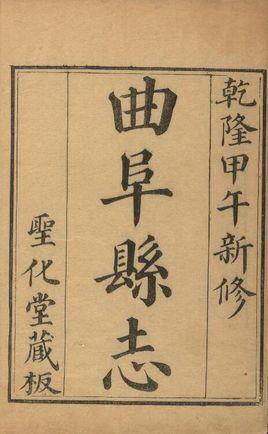 乾隆甲午新修
曲阜縣志
聖化堂藏板